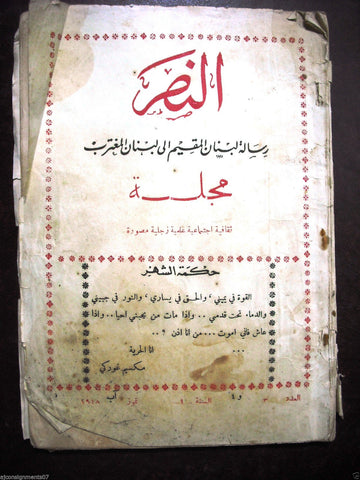 النصر
رسالة لبنان المقيم الى لبنان المغترب
مجلة
ثقافية اجتماعية علمية زجلية مصورة
حكمة الشهر
القوة في يميني ، والحق في يساري ، والنور في جبيني
والدماء تحت قدمي .. واذا مات من يحبني احيا .. واذا
عاش فلي اموت .... من انا اذن ؟ ..
انا الحرية
مكسيم غوركي
العدد ٣ و٤ السنة ١٠ تموز آب ١٩٤٨
ajconsignments07